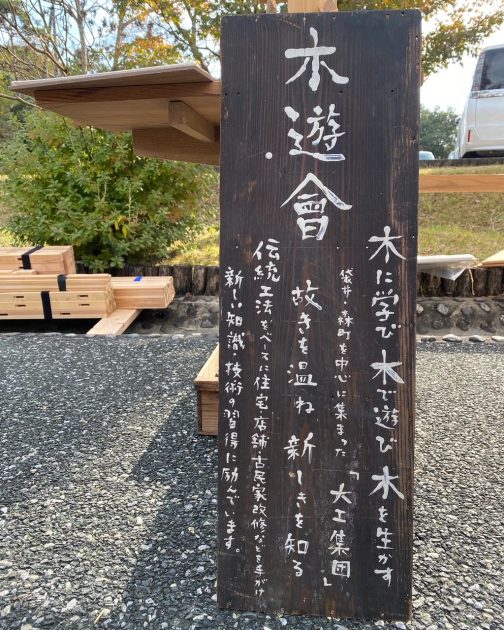 木遊會
木に学び 木で遊び 木を生かす
袋井・森町を中心に集まった「大工集団」
故きを温ね 新しきを知る
伝統工法をベースに住宅・店舗・古民家改修などを手がけ
新しい知識・技術の習得に励んでいます。